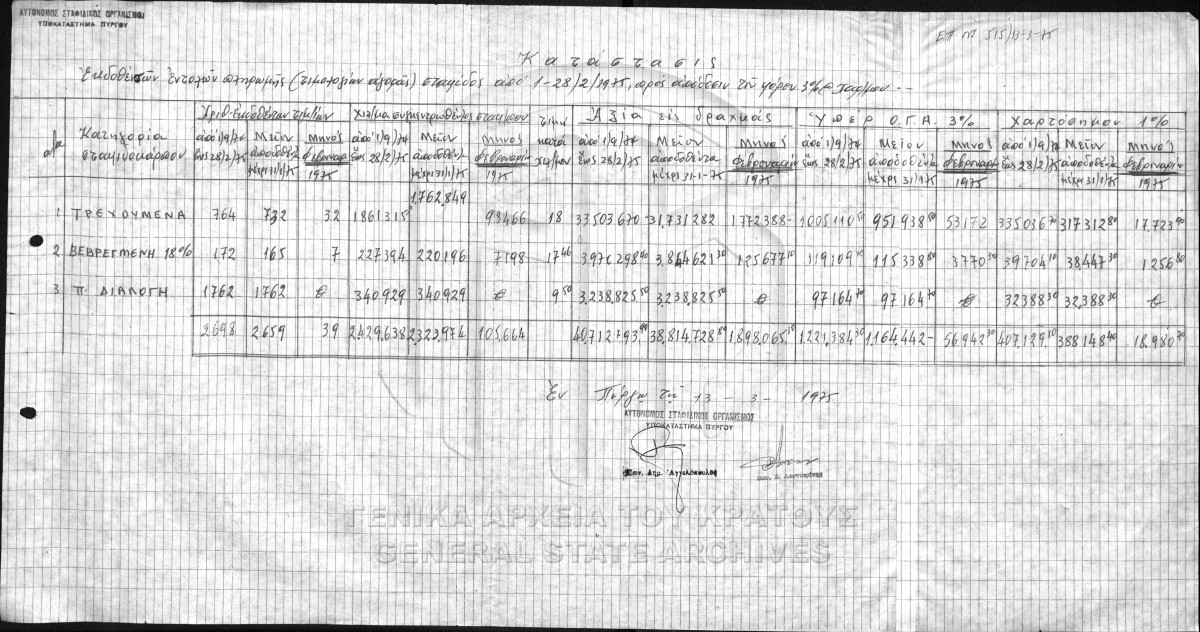 ΑΥΤΟΝΟΜΟΣ ΣΤΑΦΙΔΙΚΟΣ ΟΡΓΑΝΙΣΜΟΣ
ΥΠΟΚΑΤΑΣΤΗΜΑ ΠΥΡΓΟΥ
515/13-3-75
Κατάστασις
Ἐκδοθέντων ἐντολῶν πληρωμῆς (τιμολογίων ἀγορᾶς) σταφίδος ἀπό 1-28/2/1975, πρός ἀπόδοσιν τῶν φόρων 3% & χαρ/μου
α/α Κατηγορία σταφιδοκάρπου Ἀριθ. ἐκδοθέντων τιμ/ίων Χιλ/μα συγκεντρωθέντος σταφ/μου τιμή κατά χλ/μον Ἀξία εἰς δραχμάς Ὑπέρ Ο.Γ.Α. 3% Χαρτόσημον 1%
ἀπό 1/9/74 ἕως 28/2/75 Μεῖον ἀποδοθέν. μέχρι 31/1/75 Μηνός Φεβρουαρ. 1975 ἀπό 1/9/74 ἕως 28/2/75 Μεῖον ἀποδοθέν. μέχρι 31/1/75 Μηνός Φεβρουαρίου 1975 ἀπό 1/9/74 ἕως 28/2/75 Μεῖον ἀποδοθέντα μέχρι 31-1-75 Μηνός Φεβρουαρ. 1975 ἀπό 1/9/74 ἕως 28/2/75 Μεῖον ἀποδοθέντα μέχρι 31/1/75 Μηνός Φεβρουαρ. 1975 ἀπό 1/9/74 ἕως 28/2/75 Μεῖον ἀποδοθέν. μέχρι 31/1/75 Μηνός Φεβρουαρίου 1975
1 ΤΡΕΧΟΥΜΕΝΑ 764 732 32 1861315 1.762.849 98466 18 33503670- 31,731282 1772388- 1005110 50 951938 50 53172 335036 70 317312 80 17.723 90
2 ΒΕΒΡΕΓΜΕΝΗ 18% 172 165 7 227394 220196 7198 17 46 3970298 40 3,844621 30 125677 10 119109 10 115338 80 3770 30 39704 10 38,447 30 1256 80
3 Π. ΔΙΑΛΟΓΗ 1762 1762 θ 340929 340929 θ 9 50 3,238,825 50 3,238,825 50 θ 97164 70 97,164 70 θ 32388 30 32,388 30 θ
2698 2659 39 2429,638 2323,974 105,664 40,712793 90 38,814,728 80 1898,065 10 1.221,384 30 1,164.442- 56.942 30 407,129 10 388148 40 18.980 70
Ἐν Πύργῳ τῇ 13 - 3 - 1975
ΑΥΤΟΝΟΜΟΣ ΣΤΑΦΙΔΙΚΟΣ ΟΡΓΑΝΙΣΜΟΣ
ΥΠΟΚΑΤΑΣΤΗΜΑ ΠΥΡΓΟΥ
Δημ. Ἀγγελόπουλος
ΓΕΝΙΚΑ ΑΡΧΕΙΑ ΤΟΥ ΚΡΑΤΟΥΣ
GENERAL STATE ARCHIVES